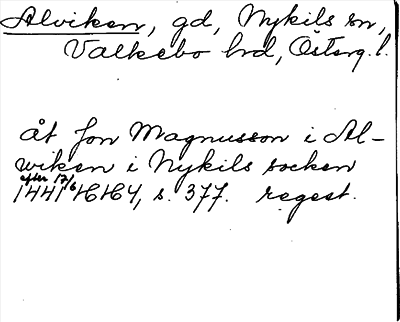 Alviken, gd, Nykils sn,
Valkebo hrd, Österg. l.
åt Jon Magnusson i Al-
wiken i Nykils socken
efter 17/6
1441 HHH4, s. 377. regest.